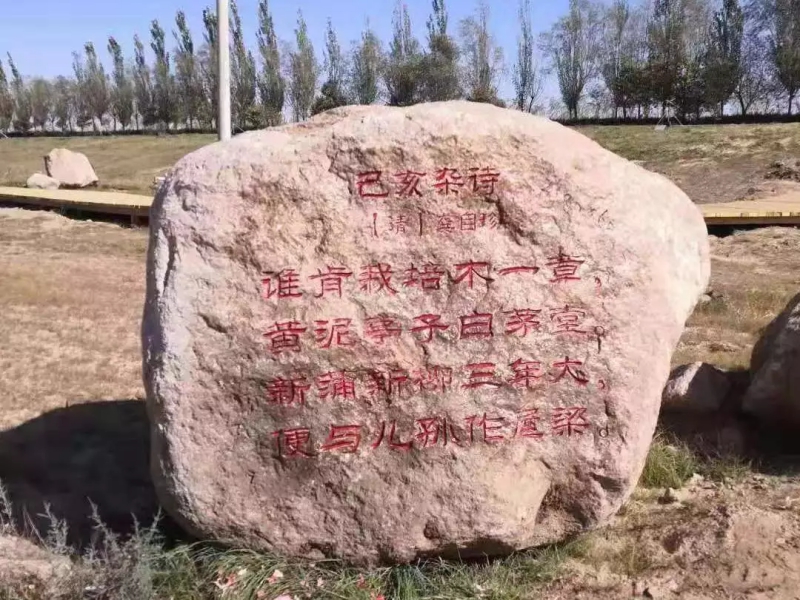 己亥杂诗
[清]龚自珍
谁肯栽培木一章，
黄泥亭子白茅堂。
新蒲新柳三年大，
便与儿孙作屋梁。